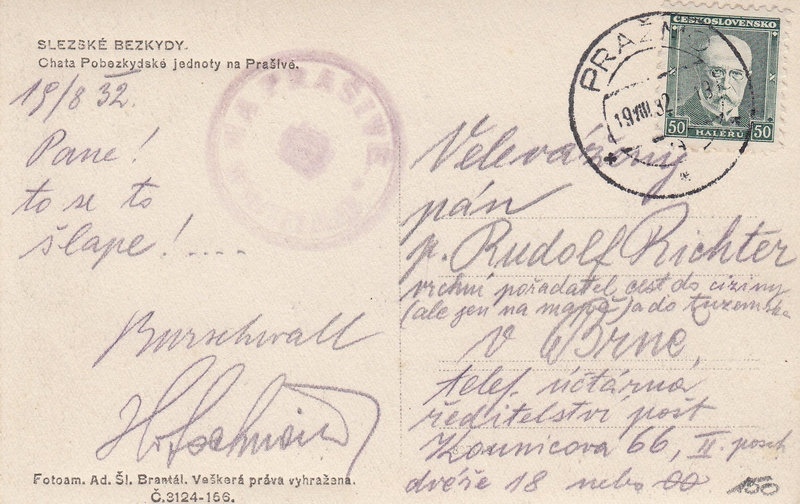 SLEZSKÉ BEZKYDY.
Chata Pobezkydské jednoty na Prašivé.
19/8 32.
Pane!
to se to
šlape!....
Burschwall
NA PRAŠIVÉ
PRAŽMO
19.VIII.32
ČESKOSLOVENSKO
50 HALÉŘŮ 50
Velevážený
pán
p. Rudolf Richter
vrchní pořadatel cest do ciziny
(ale jen na mapě) a do tuzemska
v Brně,
telef. účtárna
ředitelství pošt
Kounicova 66, II. posch
dvéře 18 nebo 00
155
Fotoam. Ad. Šl. Brantál. Veškerá práva vyhražena.
Č.3124-166.